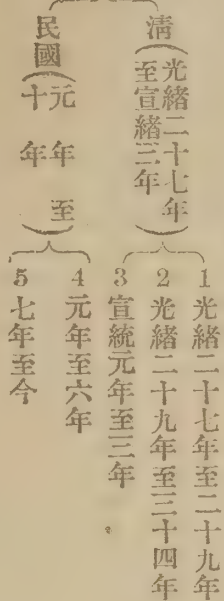 清(光緒二十七年
至宣緒三年)
1 光緒二十七年至二十九年
2 光緒二十九年至三十四年
3 宣統元年至三年
民國(元年至
十年)
4 元年至六年
5 七年至今